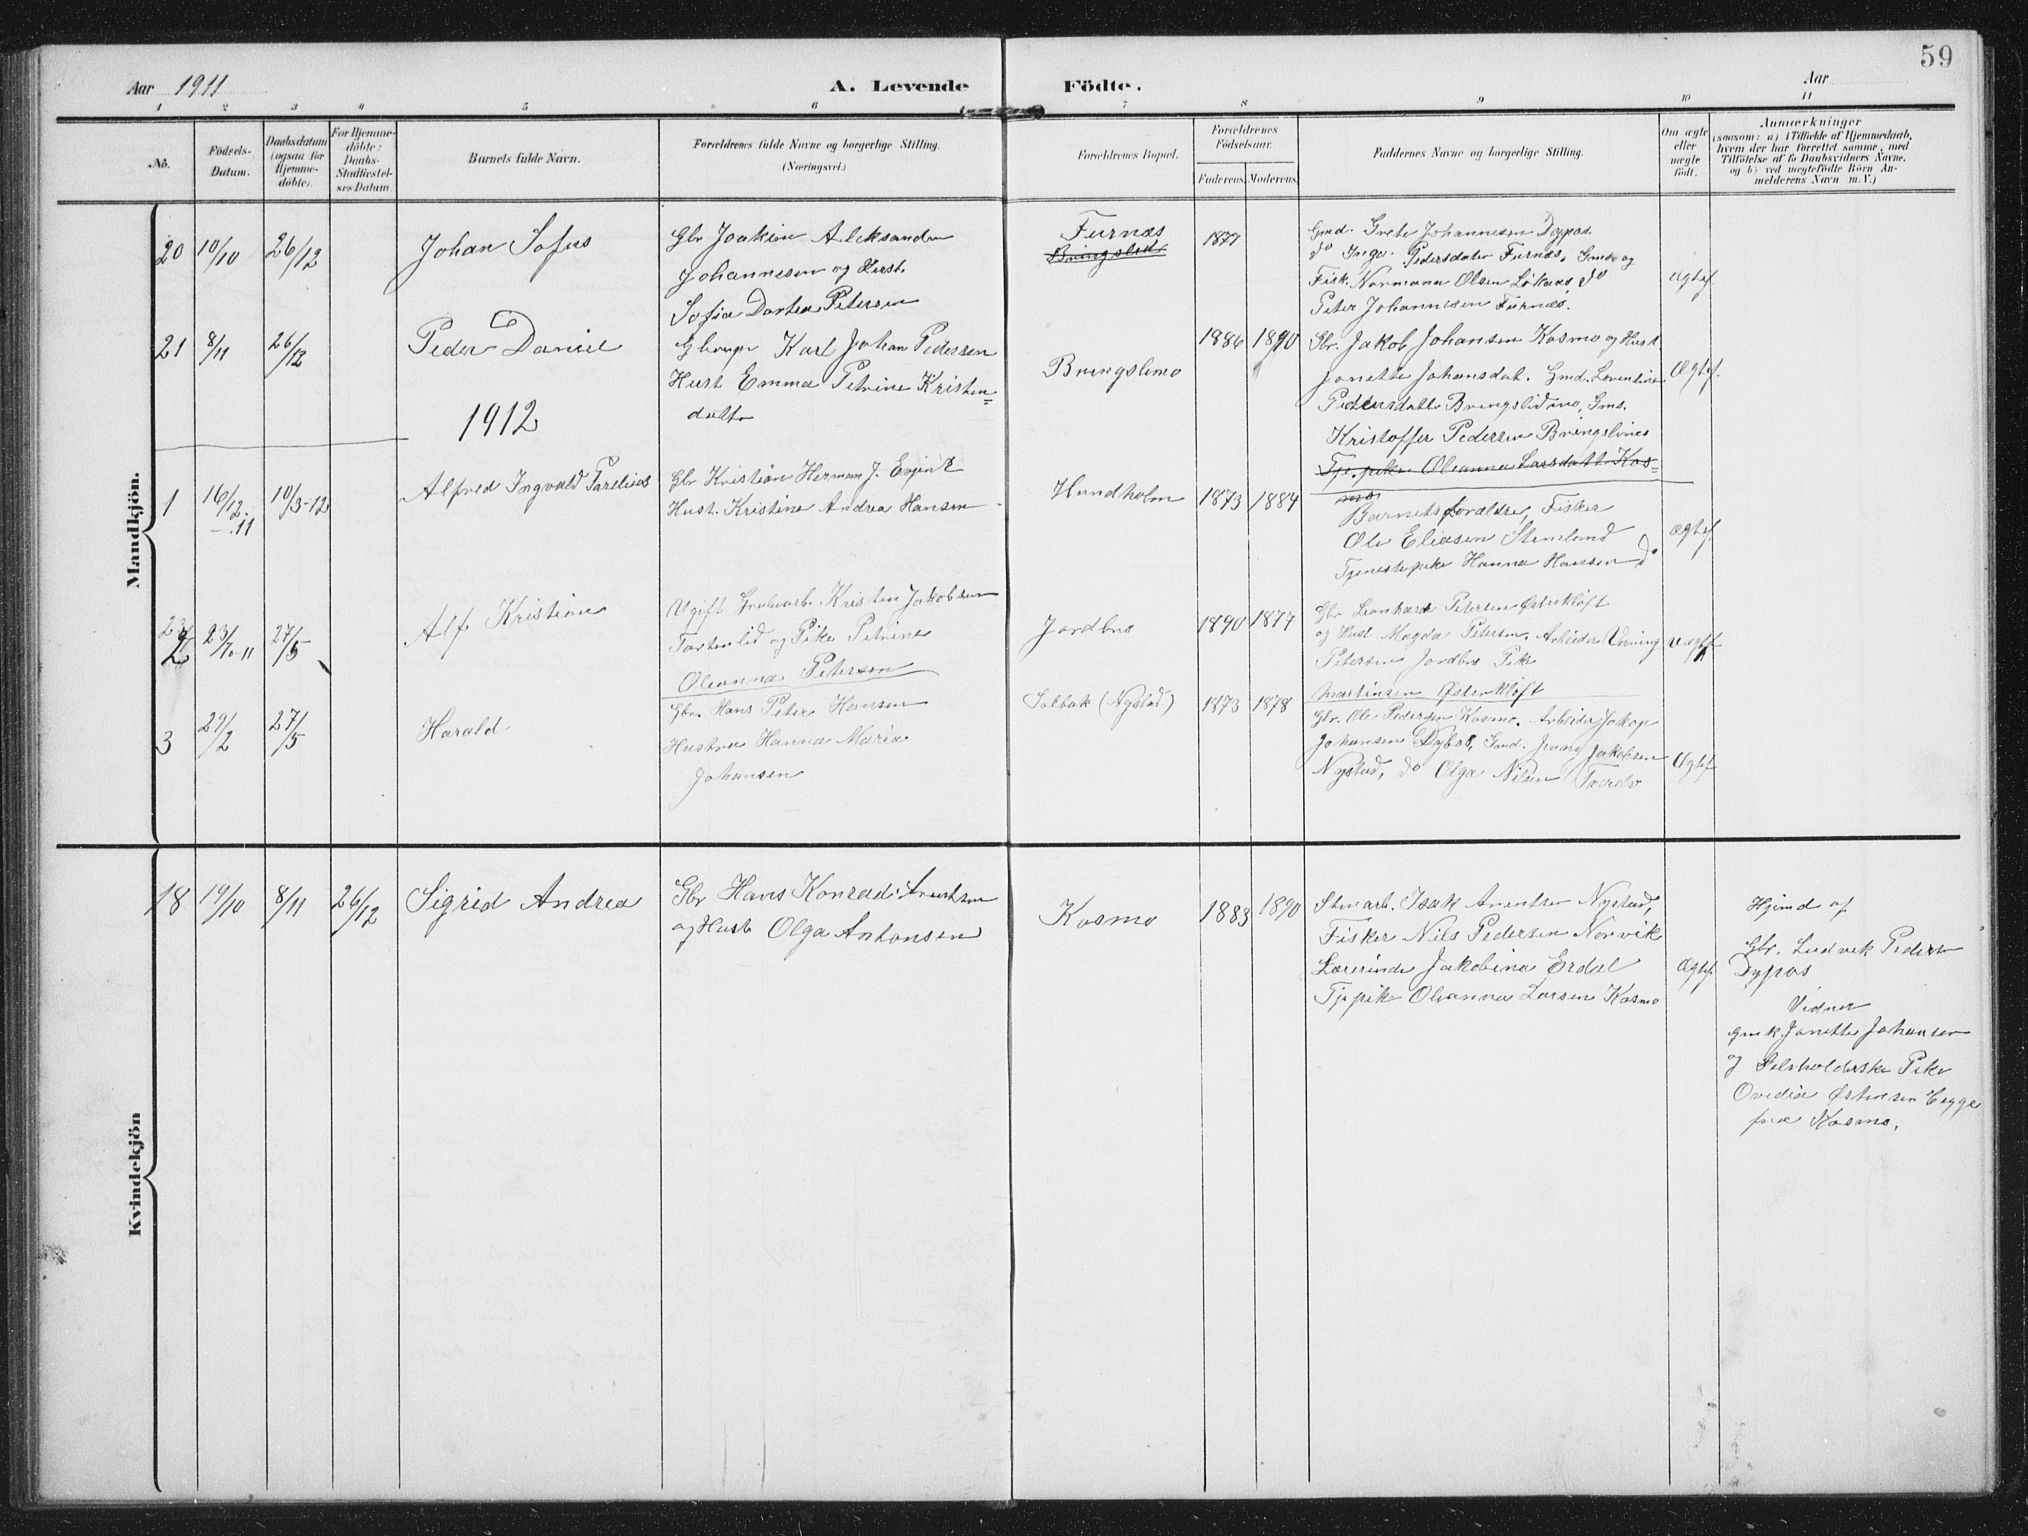 59
Aar 1911
A. Levende
Födte.
Aar
1 2 3 4 5 6 7 8 9 10 11
No.
Födsels-
Datum.
Daabsdatum
(ogsaa for
Hjemme-
döbte).
For Hjemme-
döbte:
Daabs-
Stadfæstel-
ses Datum.
Barnets fulde Navn.
Forældrenes fulde Navne og borgerlige Stilling.
(Næringsvei.)
Forældrenes Bopæl.
Forældrenes
Födselsaar.
Faderens. Moderens.
Faddernes Navne og borgerlige Stilling.
Om ægte
eller
uægte
födt.
Anmærkninger
(saasom: a) i Tilfælde af Hjemmedaab,
hvem der har forrettet samme, med
Tilföielse af to Daabsvidners Navne,
og b) ved uægtefödte Börn An-
melderens Navn m. V.)
Mandkjön.
20 10/10 26/12 Johan Sofus
Gbr Joakim Aleksander
Johannesen og Hust.
Sofia Dortea Petersen
Furnæs
Bringslid
1877
Gmd. Grete Johannesen Dypos.
do Inga Pedersdatter Furnæs, Gms og
Fisk. Normann Olsen Løkaas, do
Peter Johannesen Furnæs.
Ægtef.
21 8/11 26/12 Peder Daniel
Gbruger Karl Johan Pedersen
Hust Emma Petrine Kristen=
datter
Bringslimo
1886 1890
Gbr. Jakob Johansen Kosmo og Hust.
Janette Johansdat. Gmd. Lorentine
Pedersdatter Bringslidmo, Gms.
Kristoffer Pedersen Bringslimo
Tje.pike Oleanna Larsdatt Kos=
mo
Ægtef.
1912
1 16/12-11 10/3-12 Alfred Ingvald Parelius
Gbr Kristian Herman J. Evjen &
Hust. Kristine Andrea Hansen
Hundholm
1873 1884
Barnets forældre, Fisker
Ole Eliasen Stemland
Tjenestepike Hanna Hansen do
Ægtef.
2 23/10-11 27/5 Alf Kristian
Ugift Grubearb. Kristen Jakobsen
Tortenlid og Pike Petrine
Oleanna Petersen
Jordbro
1890 1877
Gbr Leonhard Petersen Østerkløft
og Hust Magda Petersen, Arbeider
Petersen Jordbro Pike
Martinsen Østerkløft
3 29/2 27/5 Harald
Gbr. Hans Peter Hansen
Hustru Hanna Maria
Johansen
Solbak (Nystad)
1873 1878
Gbr. Ole Pedersen Kosmo. Arbeider Jakop
Johansen, Gmd. Jakobsen
Nystad, do Olga Nilsen Tverdbo
Ægtef
Kvindekjön
18 19/10 8/11 26/12 Sigrid Andrea
Gbr Hans Konrad Arentsen
og Hust Olga Antonsen
Kosmo
1883 1890
Stenarb. Isak Arentsen Nystad,
Fisker Nils Pedersen Norvik
Lærerinde Jakobina Erdal
Tjepike Oleanna Larsen Kosmo
Ægtef.
Hjemd af
Gbr. Ludvik Pedersen
Dypos
Vidner
gmk Janette Johansen
og Selvholderske Pike
Ovidia Østensen begge
fra Kosmo.